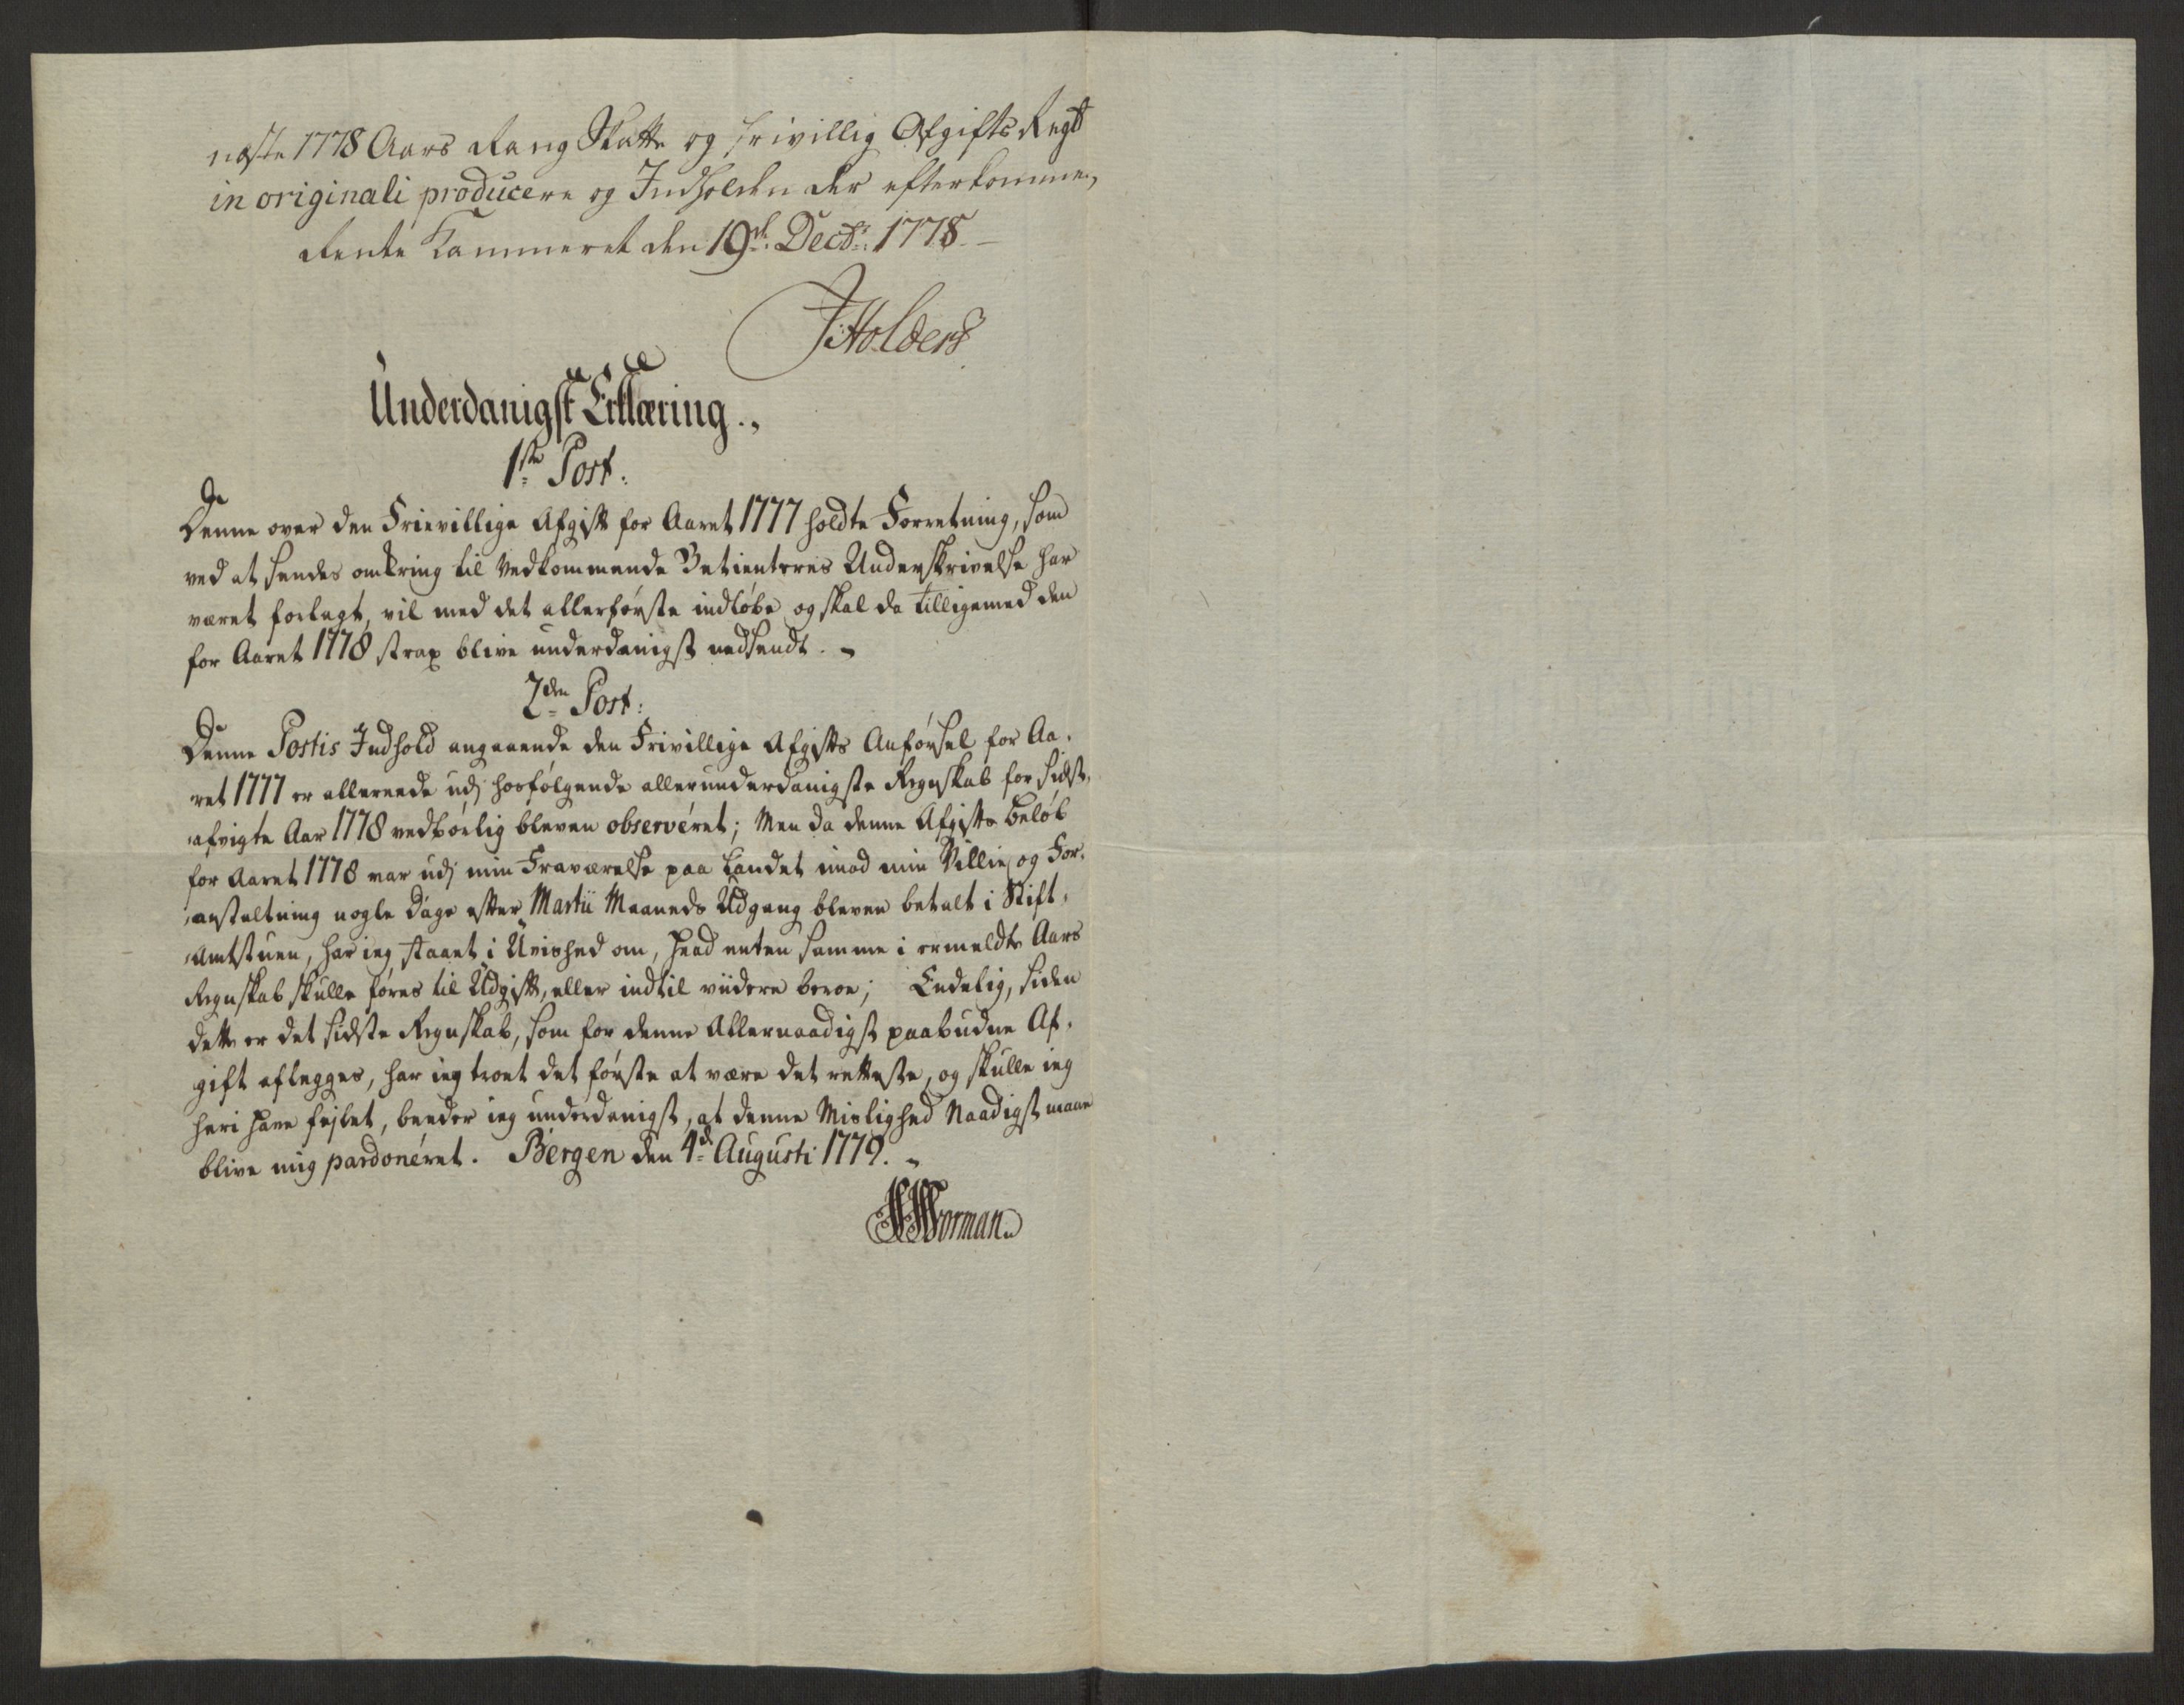 næste 1778 Aars Rang Skatte og frivillig Afgifts Regsk
in originali producere og Indholden der efterkomme,
Rente Kammeret den 19d: Decbr: 1778 –
J Holders
Underdanigst Erklæring.,
1ste Post:
Denne over den Frievillige Afgift for Aaret 1777 holdte Forretning, som
ved at sendes omkring til Vedkommende Betienteres Underskrivelse har
været forlagt, vil med det allerførste indløbe og skal da tilligemed den
for Aaret 1778 strax blive underdanigst nedsendt. –
2den Post:
Denne Postis Indhold angaaende den Frivillige Afgifts Anførsel for Aa,
ret 1777 er allereede udj hosfølgende allerunderdanigste Regnskab for sidst,
,afvigte Aar 1778 vedbørlig bleven observéret; Men da denne Afgifts beløb
for Aaret 1778 var udj min Fraværelse paa Landet imod min Villie og For,
,anstaltning nogle Dage efter Martii Maaneds Udgang bleven betalt i Stift,
,Amtstuen, har ieg staaet i Uvished om, hvad enten samme i ermeldte Aars
Regnskab skulle føres til Udgift, eller indtil viidere beroe; Endelig, siden
dette er det sidste Regnskab, som for denne Allernaadigst paabudne Af,
gift aflegges, har ieg troet det første at være det retteste, og skulle ieg
heri have fejlet, beeder ieg underdanigst, at denne Mislighed Naadigst maae
blive mig pardonéret. Bergen den 4d: Augusti 1779. –
Worman